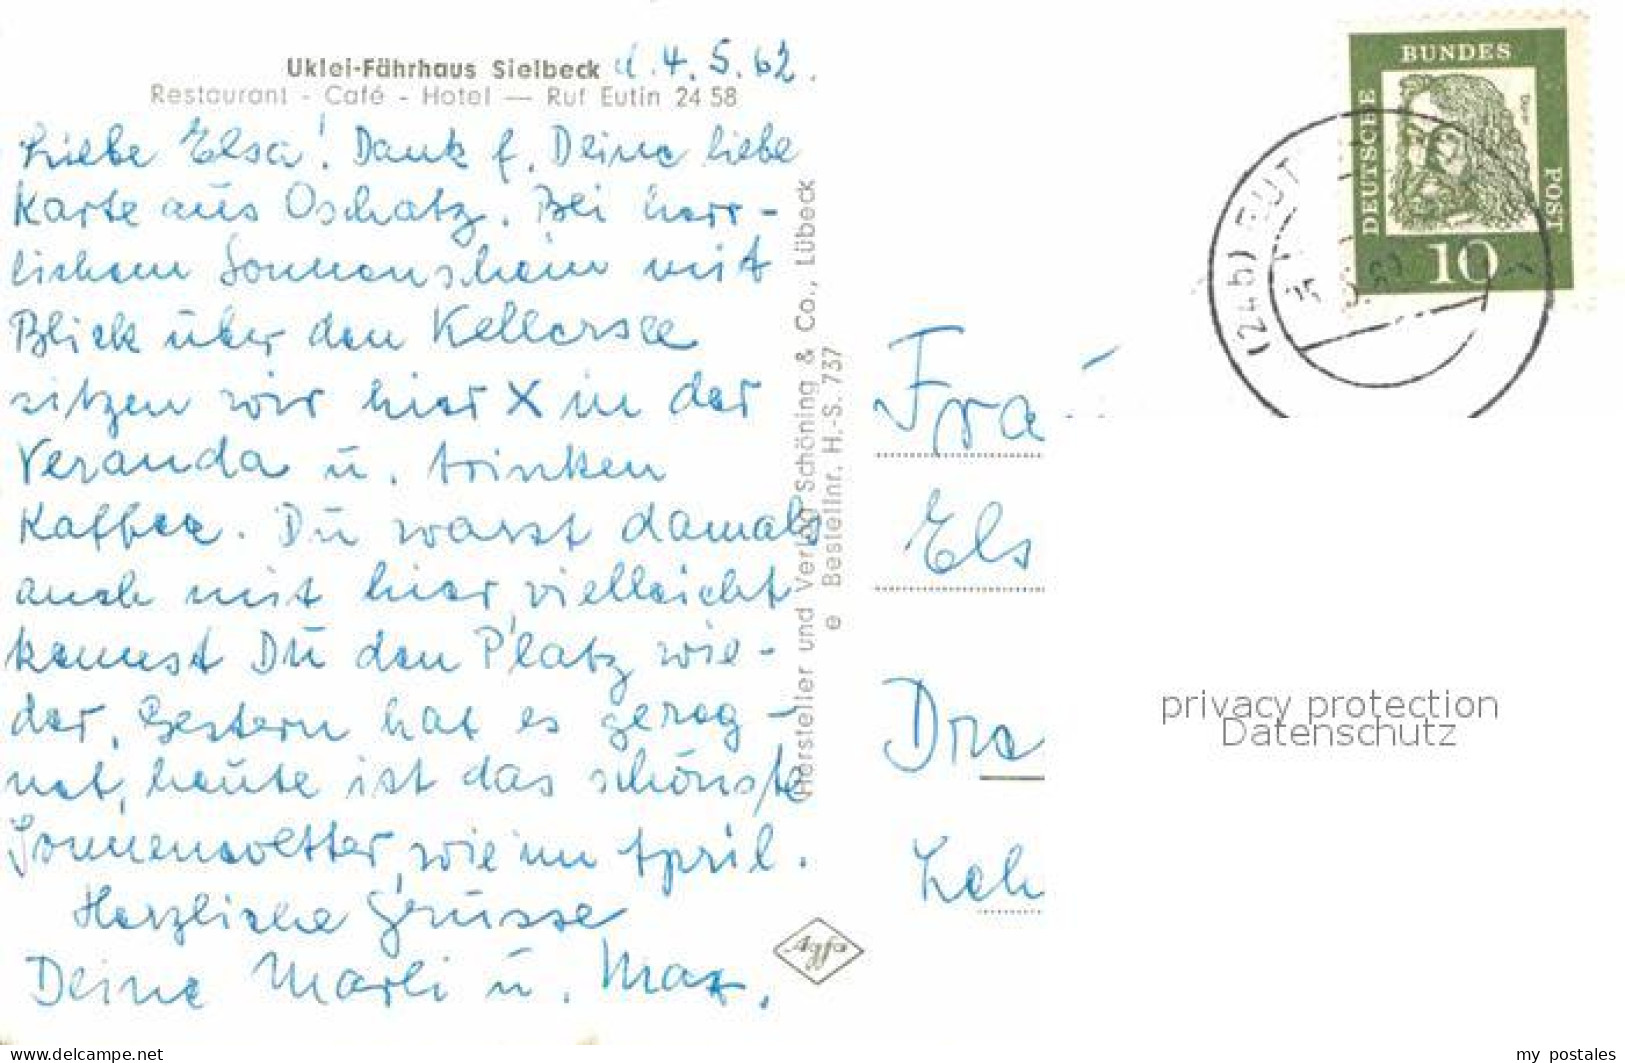 Uklei-Fährhaus Sielbeck d. 4. 5. 62.
Restaurant - Café - Hotel — Ruf Eutin 24 58
Liebe Elsa! Dank f. Deine liebe
Karte aus Oschatz. Bei herr-
lichem Sonnenschein mit
Blick über den Kellersee
sitzen wir hier X in der
Veranda u. trinken
Kaffee. Du warst damals
auch mit hier, vielleicht
kennst Du den Platz wie-
der. Gestern hat es gereg-
net, heute ist das schönste
Sonnenwetter, wie im April.
Herzliche Grüsse
Deine Marli u. Max.
Hersteller und Verlag Schöning & Co., Lübeck
e Bestellnr. H.-S. 737
Agfa
DEUTSCHE
BUNDES
POST
Dürer
10
(24b) EUT
Els
privacy protection
Datenschutz
www.delcampe.net
my_postales